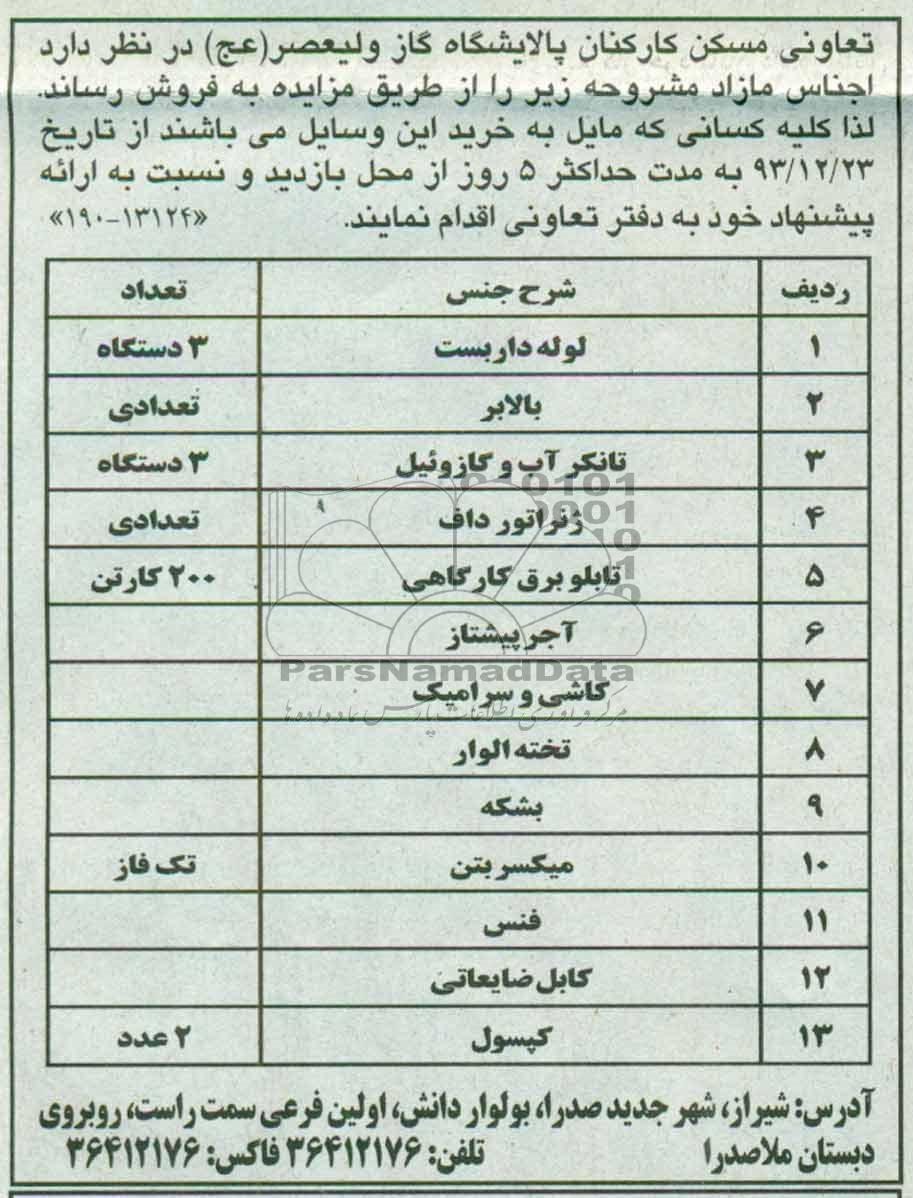 تعاونی مسکن کارکنان پالایشگاه گاز ولیعصر(عج) در نظر دارد
اجناس مازاد مشروحه زیر را از طریق مزایده به فروش رساند.
لذا کلیه کسانی که مایل به خرید این وسایل می باشند از تاریخ
۹۳/۱۲/۲۳ به مدت حداکثر ۵ روز از محل بازدید و نسبت به ارائه
پیشنهاد خود به دفتر تعاونی اقدام نمایند. «۱۹۰-۱۳۱۲۴»
ردیف شرح جنس تعداد
۱ لوله داربست ۳ دستگاه
۲ بالابر تعدادی
۳ تانکر آب و گازوئیل ۳ دستگاه
۴ ژنراتور داف تعدادی
۵ تابلو برق کارگاهی ۲۰۰ کارتن
۶ آجر پیشتاز
۷ کاشی و سرامیک
۸ تخته الوار
۹ بشکه
۱۰ میکسر بتن تک فاز
۱۱ فنس
۱۲ کابل ضایعاتی
۱۳ کپسول ۲ عدد
آدرس: شیراز، شهر جدید صدرا، بولوار دانش، اولین فرعی سمت راست، روبروی
دبستان ملاصدرا تلفن: ۳۶۴۱۲۱۷۶ فاکس: ۳۶۴۱۲۱۷۶
ParsNamadData